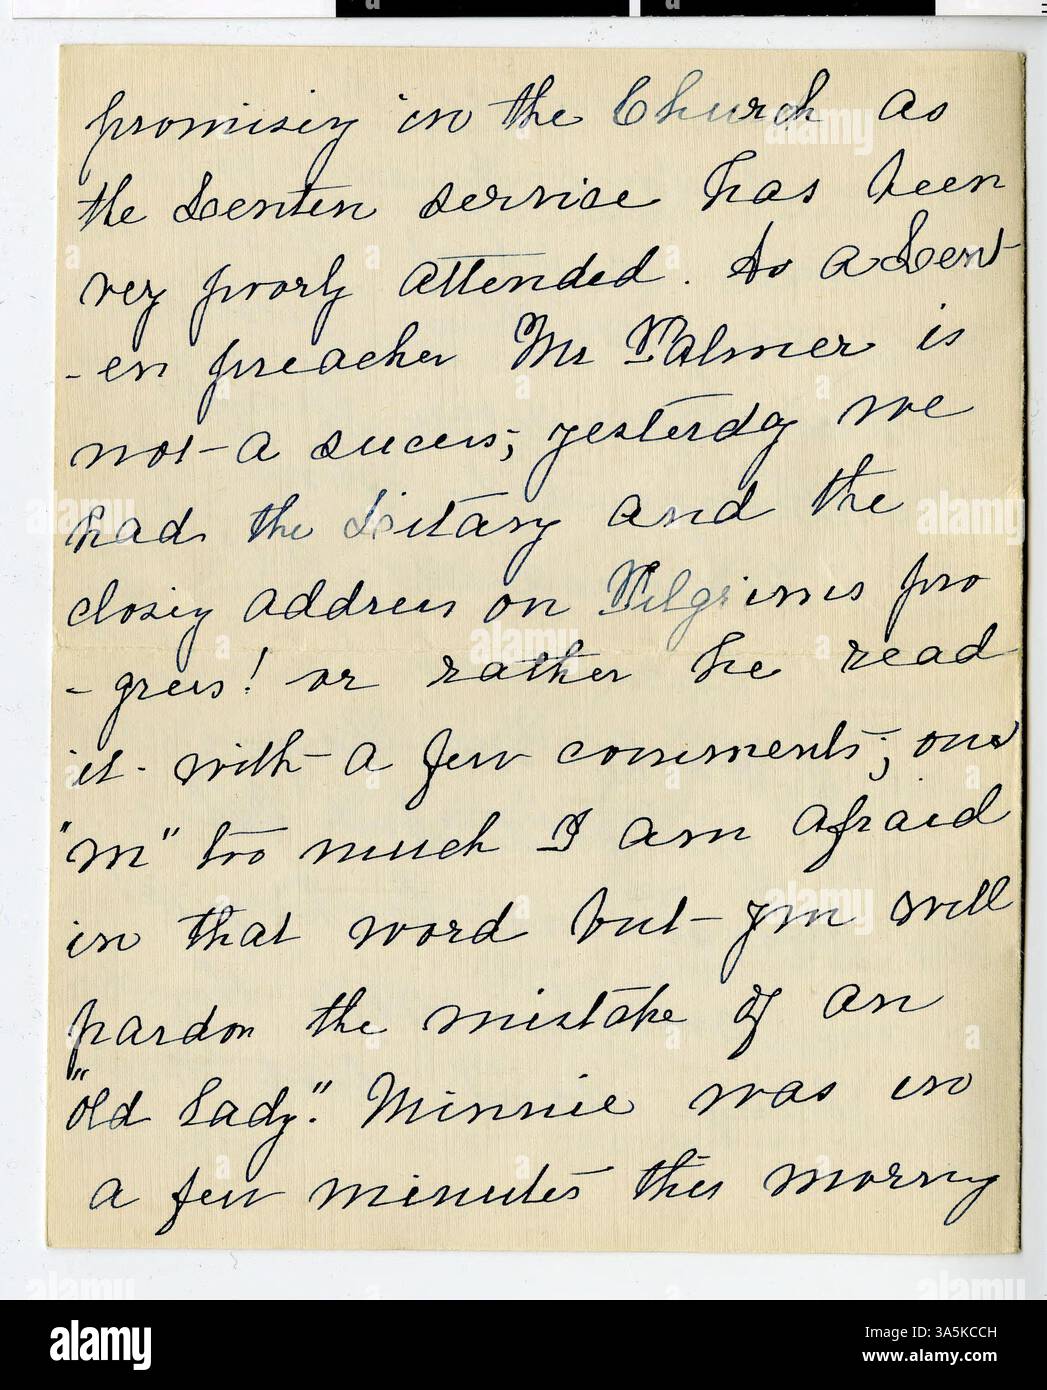 promising in the Church as
the Lenten service has been
very poorly attended. As a Lent-
-en preacher Mr Palmer is
not a success; yesterday we
had the Litany and the
closing address on Pilgrims pro
-gress! or rather he read
it with a few comments; one
"m" too much I am afraid
in that word but you will
pardon the mistake of an
"old Lady." Minnie was in
a few minutes this morning
alamy
Image ID: 3A5KCCH
www.alamy.com